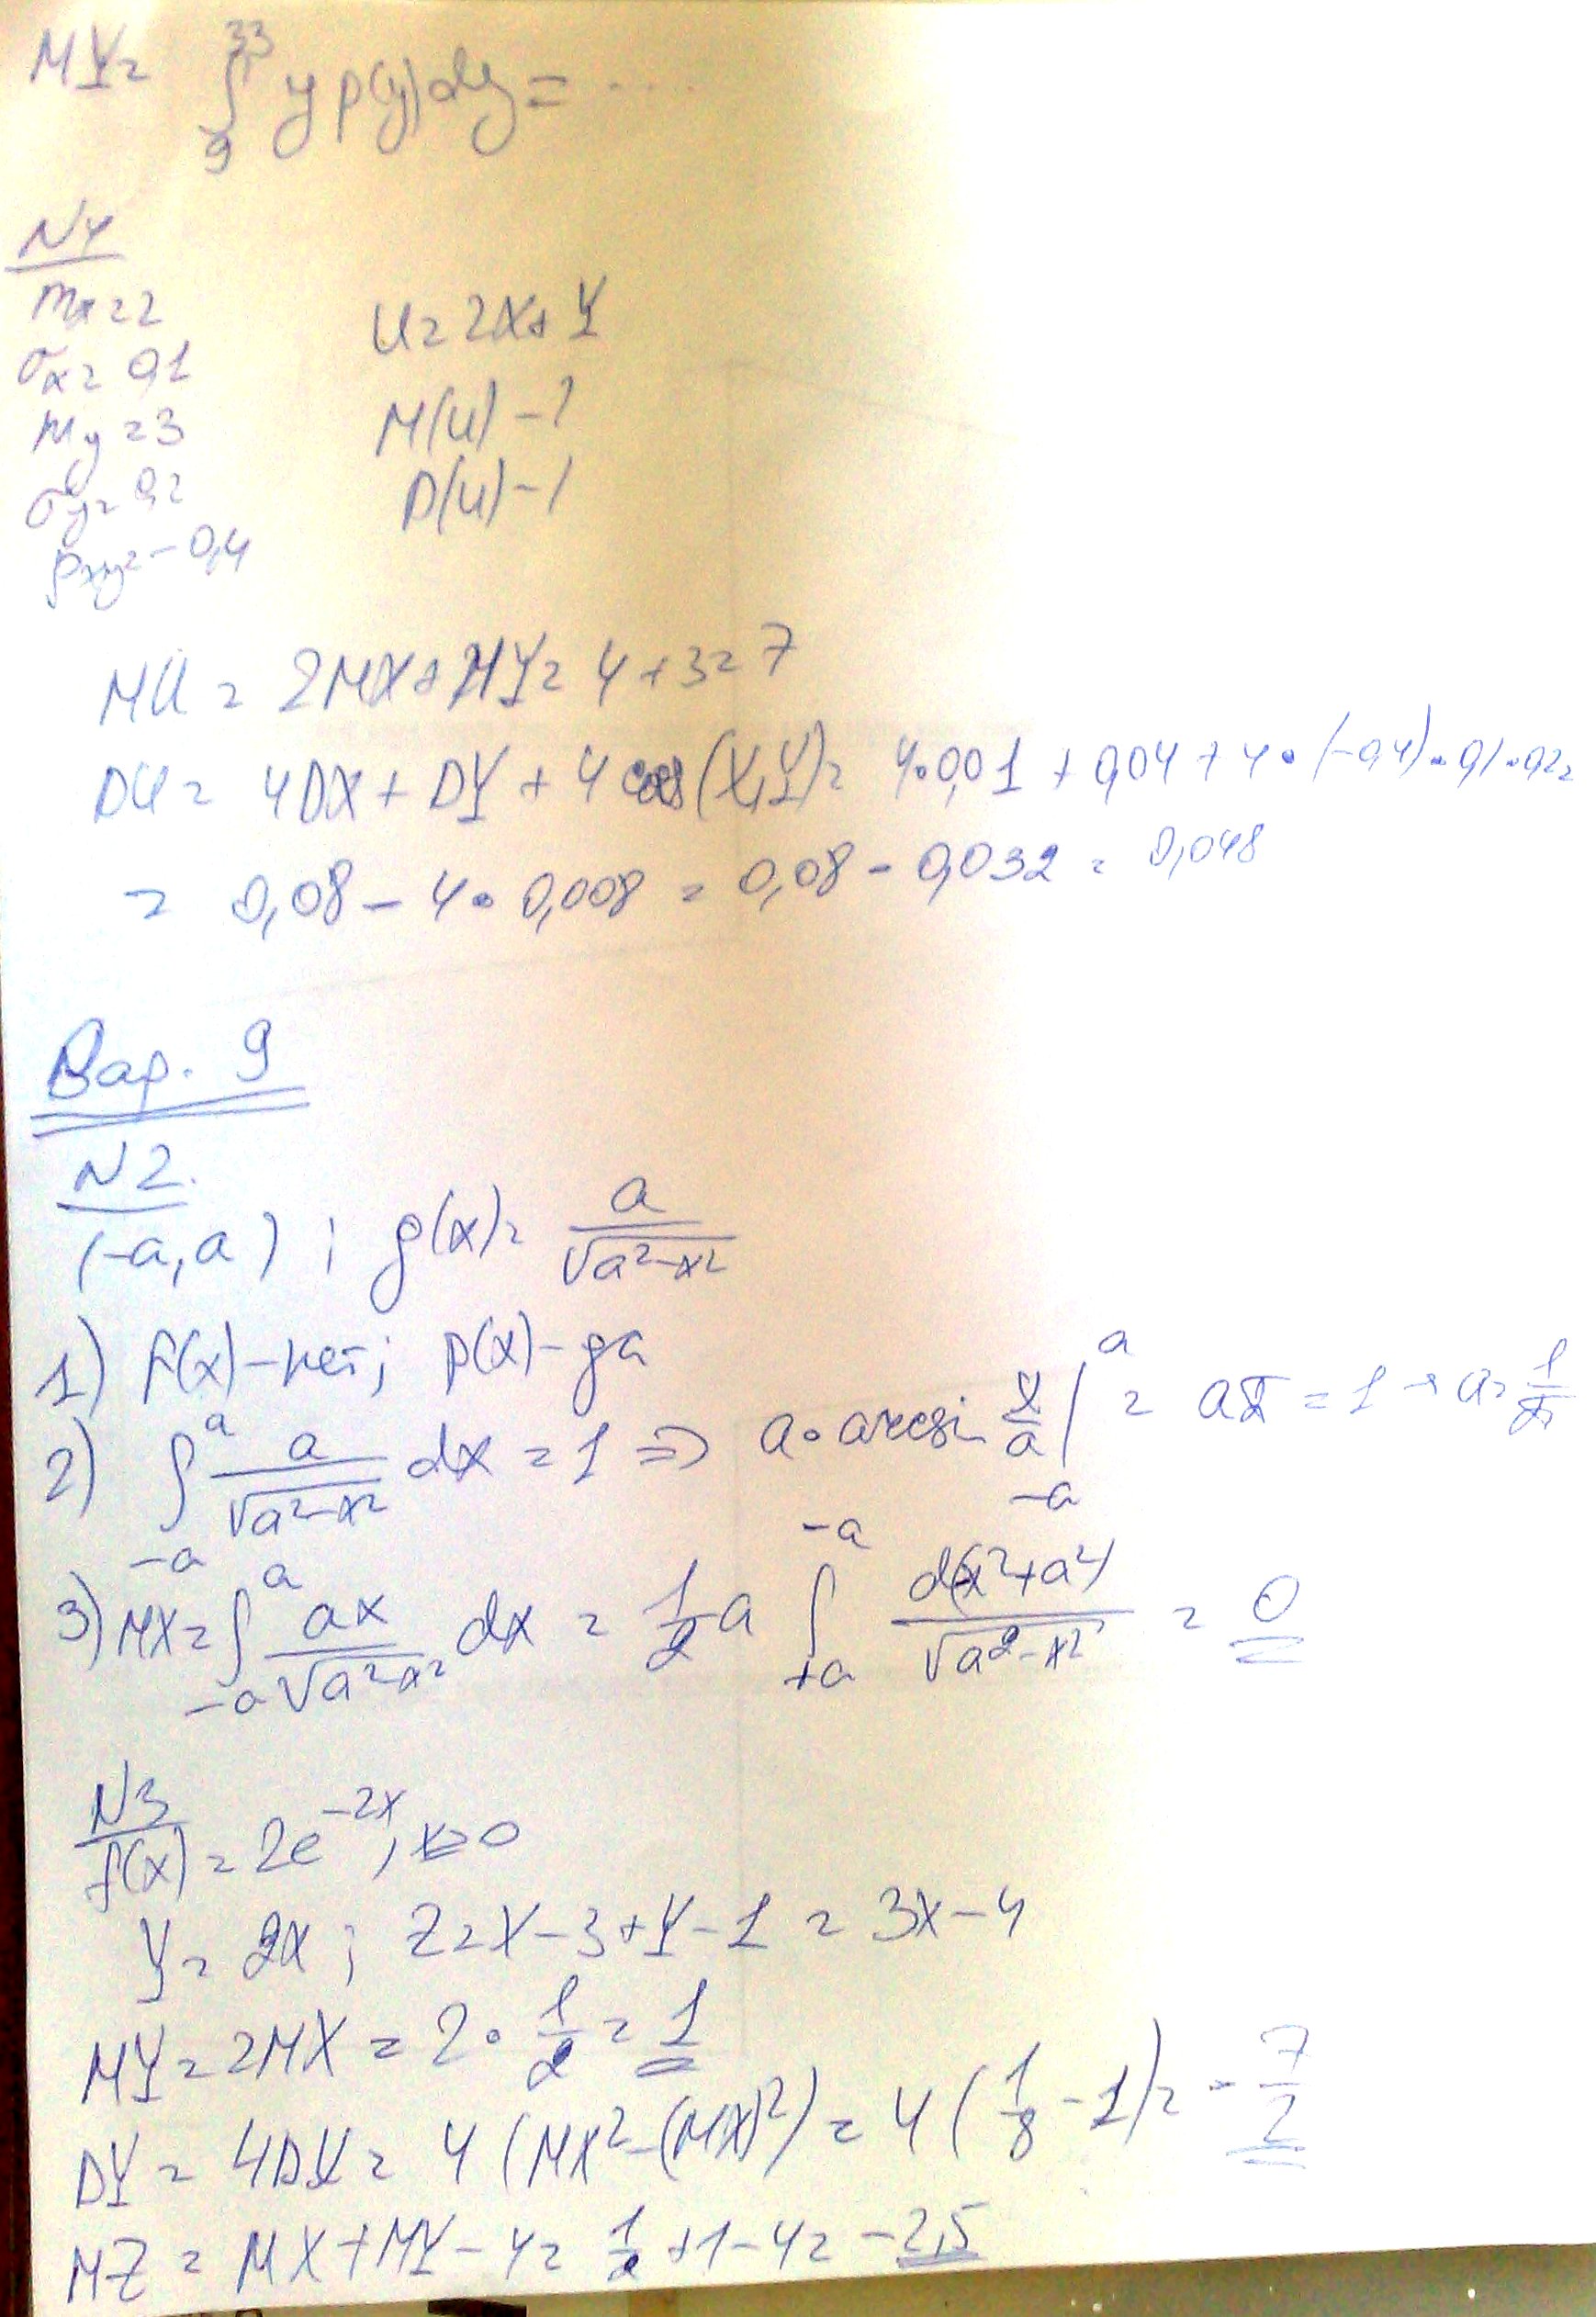 MY = ∫₉³³ y p(y) dy = ....
N4
mx = 2
σx = 0,1
U = 2X + Y
my = 3
M(U) - ?
σy = 0,2
D(U) - ?
ρxy = -0,4
MU = 2MX + MY = 4 + 3 = 7
DU = 4DX + DY + 4 cov(X,Y) = 4·0,01 + 0,04 + 4·(-0,4)·0,1·0,2 =
= 0,08 - 4·0,008 = 0,08 - 0,032 = 0,048
Вар. 9
N2.
(-a, a) ; g(x) = a/√(a²-x²)
1) F(x) - нет; p(x) - да
2) ∫₋ₐᵃ a/√(a²-x²) dx = 1 ⇒ a·arcsin x/a |₋ₐᵃ = aπ = 1 → a = 1/π
3) MX = ∫₋ₐᵃ ax/√(a²-x²) dx = 1/2 a ∫₊ₐ⁻ᵃ d(x²+a²)/√(a²-x²) = 0
N3
f(x) = 2e^(-2x), x≥0
Y = 2X ; Z = X - 3 + Y - 1 = 3X - 4
MY = 2MX = 2·1/2 = 1
DY = 4DX = 4(MX² - (MX)²) = 4(1/8 - 1) = -7/2
MZ = MX + MY - 4 = 1/2 + 1 - 4 = -2,5